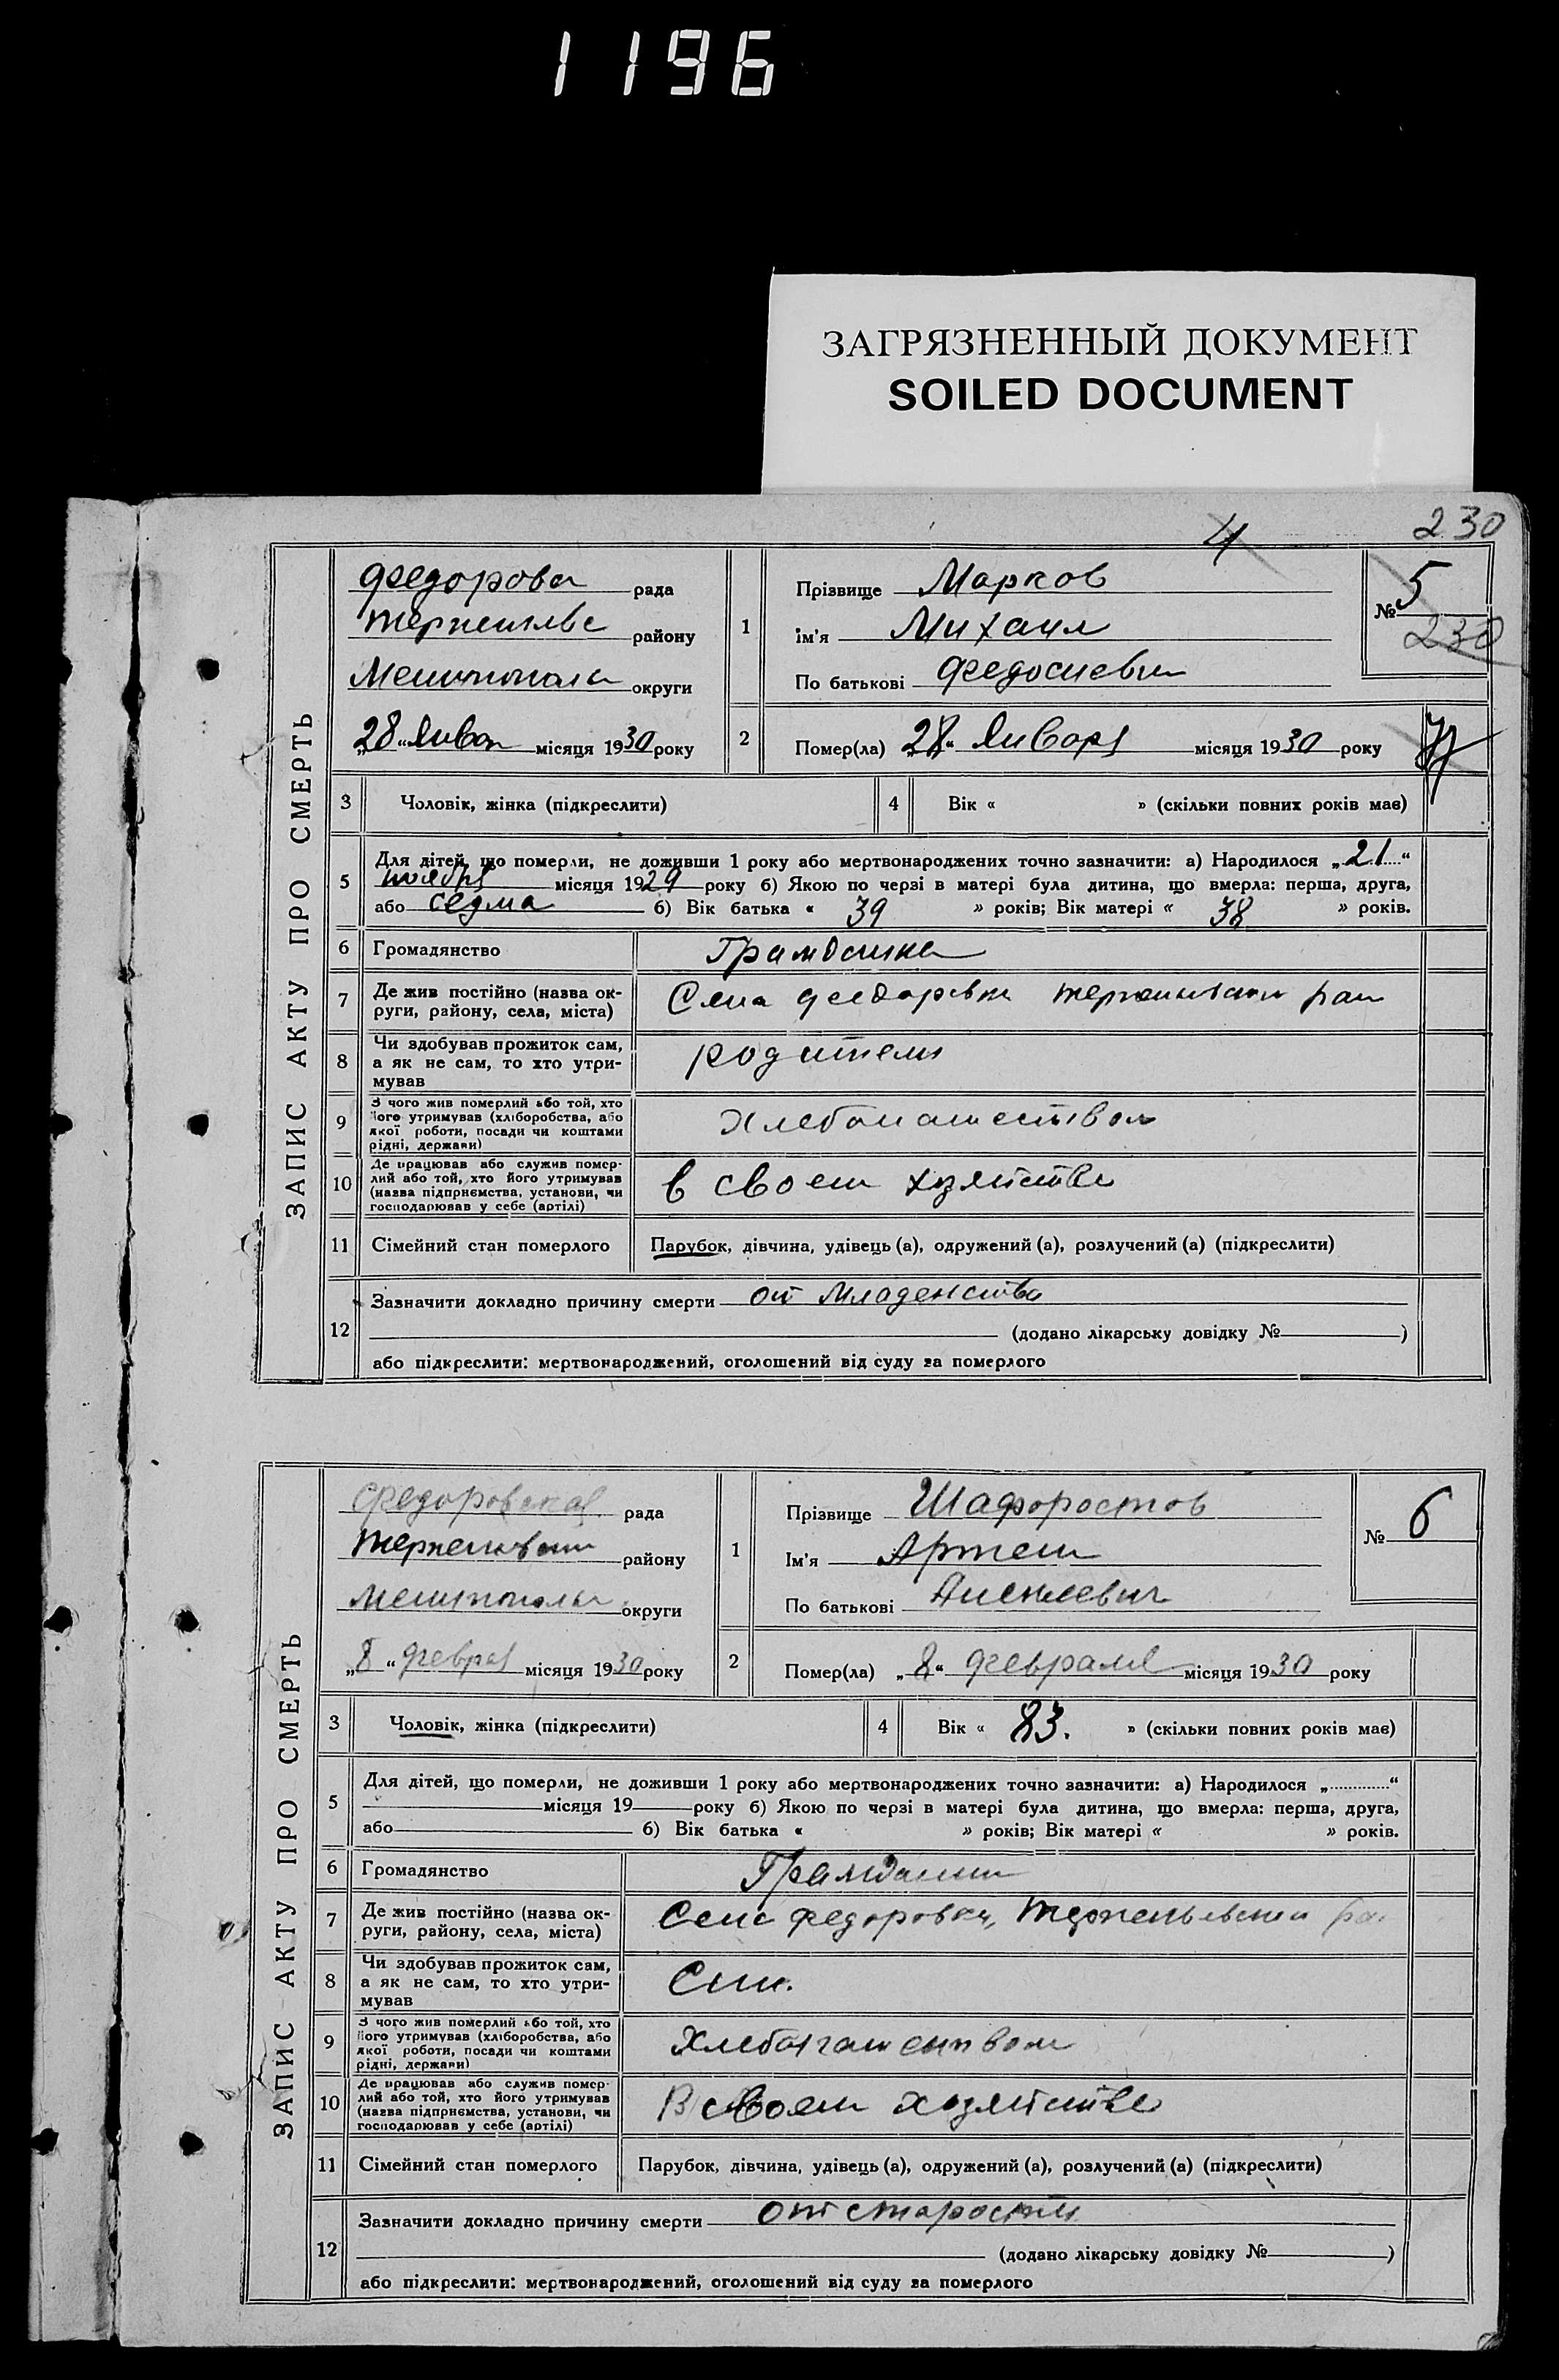 1196
ЗАГРЯЗНЕННЫЙ ДОКУМЕНТ
SOILED DOCUMENT
4
230
ЗАПИС АКТУ ПРО СМЕРТЬ
Федорова рада
района
району
округи
„28“ Янва місяця 1930 року
1
Прізвище Марков
Ім'я Михаил
По батькові Федосиевич
№ 5
230
2
Помер(ла) „28“ Январ місяця 1930 року
3 Чоловік, жінка (підкреслити)
4 Вік « » (скільки повних років має)
5 Для дітей, що померли, не доживши 1 року або мертвонароджених точно зазначити: а) Народилося „21“
ноября місяця 1929 року б) Якою по черзі в матері була дитина, що вмерла: перша, друга,
або седма б) Вік батька « 39 » років; Вік матері « 38 » років.
6 Громадянство
7 Де жив постійно (назва ок-
руги, району, села, міста)
Села Федоровки
8 Чи здобував прожиток сам,
а як не сам, то хто утри-
мував
родители
9 З чого жив померлий або той, хто
його утримував (хліборобства, або
якої роботи, посади чи коштами
рідні, держави)
Хлебопашеством
10 Де працював або служив помер-
лий або той, хто його утримував
(назва підприємства, установи, чи
господарював у себе (артілі)
в своем хозяйстве
11 Сімейний стан померлого Парубок, дівчина, удівець (а), одружений (а), розлучений (а) (підкреслити)
12 Зазначити докладно причину смерти от Младенства
(додано лікарську довідку № )
або підкреслити: мертвонароджений, оголошений від суду за померлого
ЗАПИС АКТУ ПРО СМЕРТЬ
Федоровская рада
району
округи
„8“ Феврал місяця 1930 року
1
Прізвище Шафоростов
Ім'я Артем
По батькові
№ 6
2
Помер(ла) „8“ Февраля місяця 1930 року
3 Чоловік, жінка (підкреслити)
4 Вік « 83. » (скільки повних років має)
5 Для дітей, що померли, не доживши 1 року або мертвонароджених точно зазначити: а) Народилося „ “
місяця 19 року б) Якою по черзі в матері була дитина, що вмерла: перша, друга,
або б) Вік батька « » років; Вік матері « » років.
6 Громадянство
7 Де жив постійно (назва ок-
руги, району, села, міста)
Села Федоровки,
8 Чи здобував прожиток сам,
а як не сам, то хто утри-
мував
9 З чого жив померлий або той, хто
його утримував (хліборобства, або
якої роботи, посади чи коштами
рідні, держави)
Хлебопашеством
10 Де працював або служив помер-
лий або той, хто його утримував
(назва підприємства, установи, чи
господарював у себе (артілі)
В своем хозяйстве
11 Сімейний стан померлого Парубок, дівчина, удівець (а), одружений (а), розлучений (а) (підкреслити)
12 Зазначити докладно причину смерти от старости
(додано лікарську довідку № )
або підкреслити: мертвонароджений, оголошений від суду за померлого